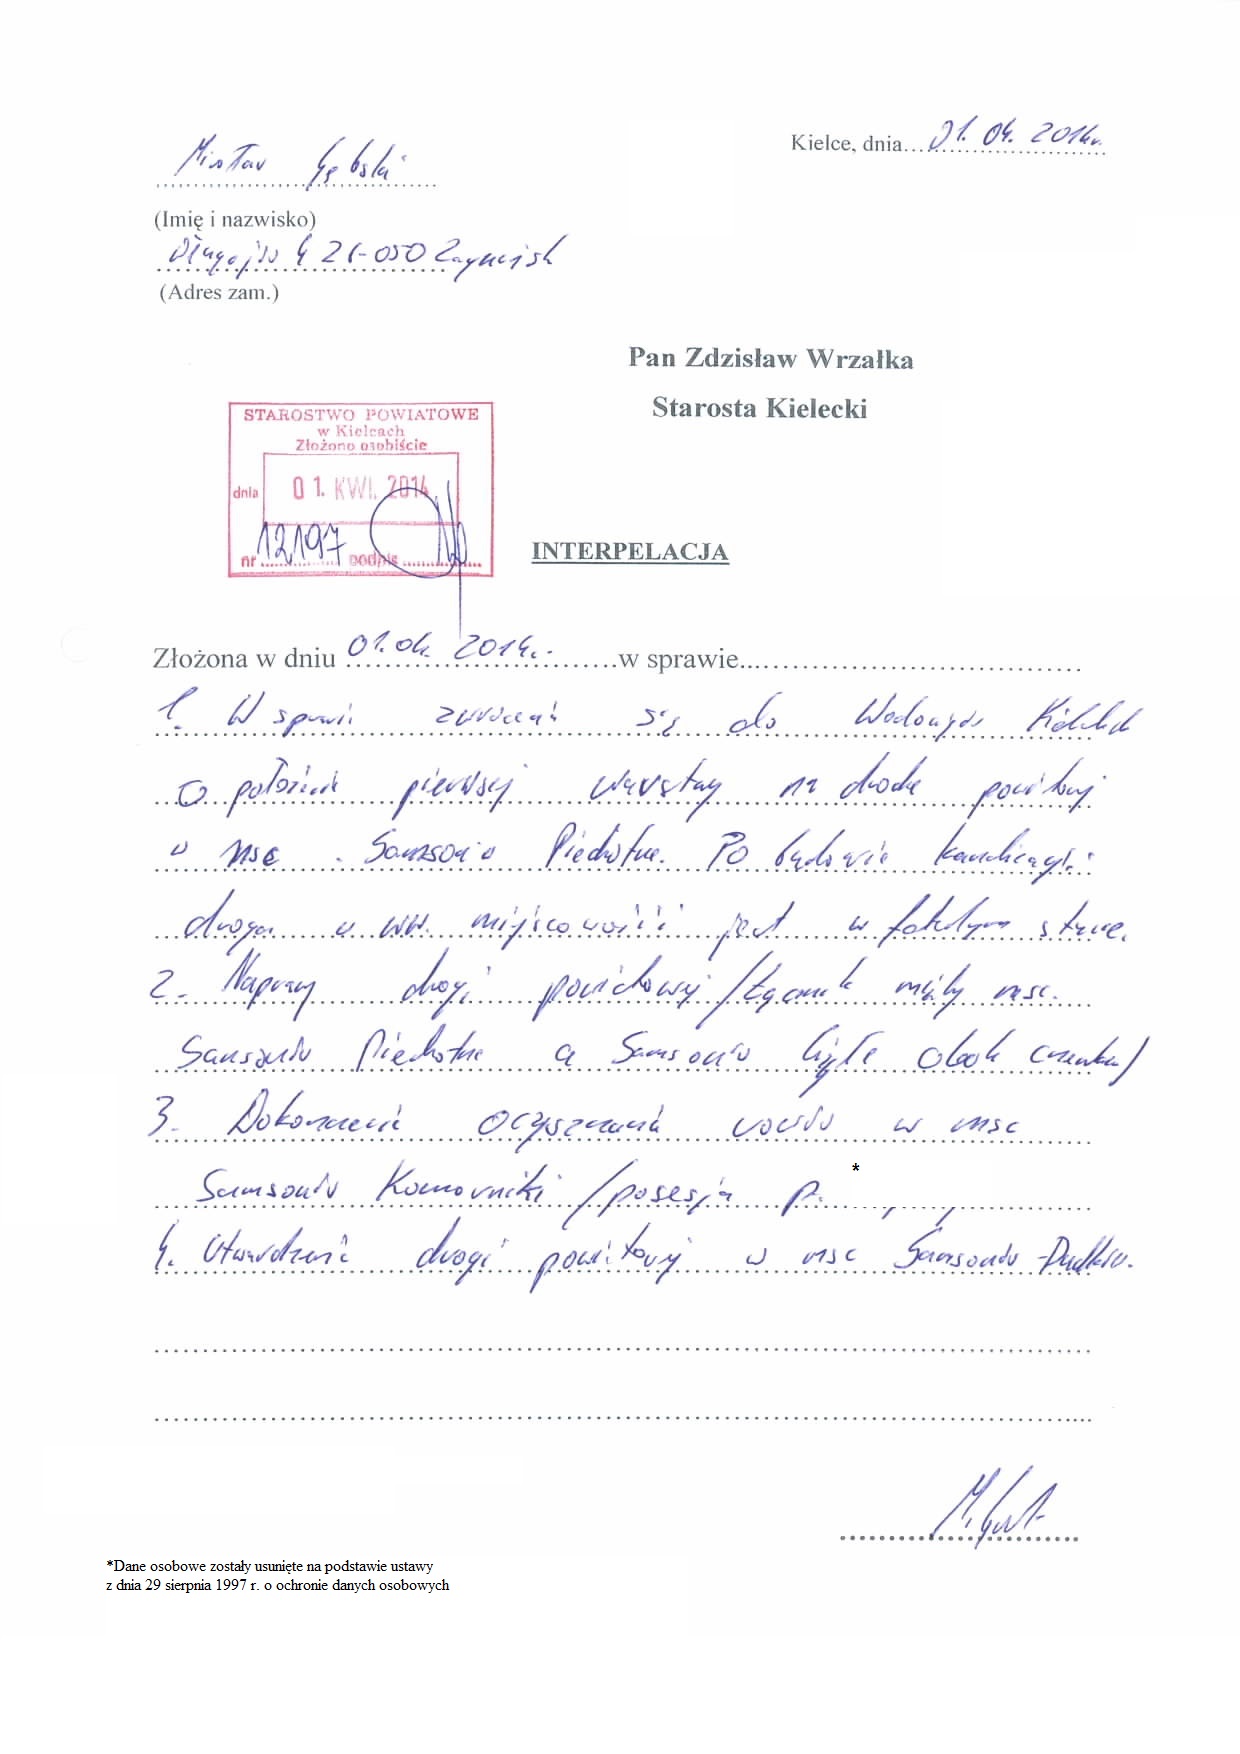 Kielce, dnia...01.04.2014r.
Mirosław Gębski
(Imię i nazwisko)
26-050 Zagnańsk
(Adres zam.)
Pan Zdzisław Wrzałka
Starosta Kielecki
STAROSTWO POWIATOWE
w Kielcach
Złożono osobiście
dnia 01. KWI. 2014
nr 12197 podpis
INTERPELACJA
Złożona w dniu 01.04.2014r. w sprawie
1. W sprawie zwrócenia się do Wodociągów Kieleckich
o położenie pierwszej warstwy na drodze powiatowej
w msc. Samsonów Piechotne. Po budowie kanalizacji
droga w ww. miejscowości jest w fatalnym stanie.
2. Naprawy drogi powiatowej /łącznik między msc.
Samsonów Piechotne a Samsonów Ciągłe obok cmentarza/
3. Dokończenie oczyszczania rowów w msc
Samsonów Komorniki /posesja p. *
4. Utwardzenie drogi powiatowej w msc Samsonów-Dudków.
*Dane osobowe zostały usunięte na podstawie ustawy
z dnia 29 sierpnia 1997 r. o ochronie danych osobowych